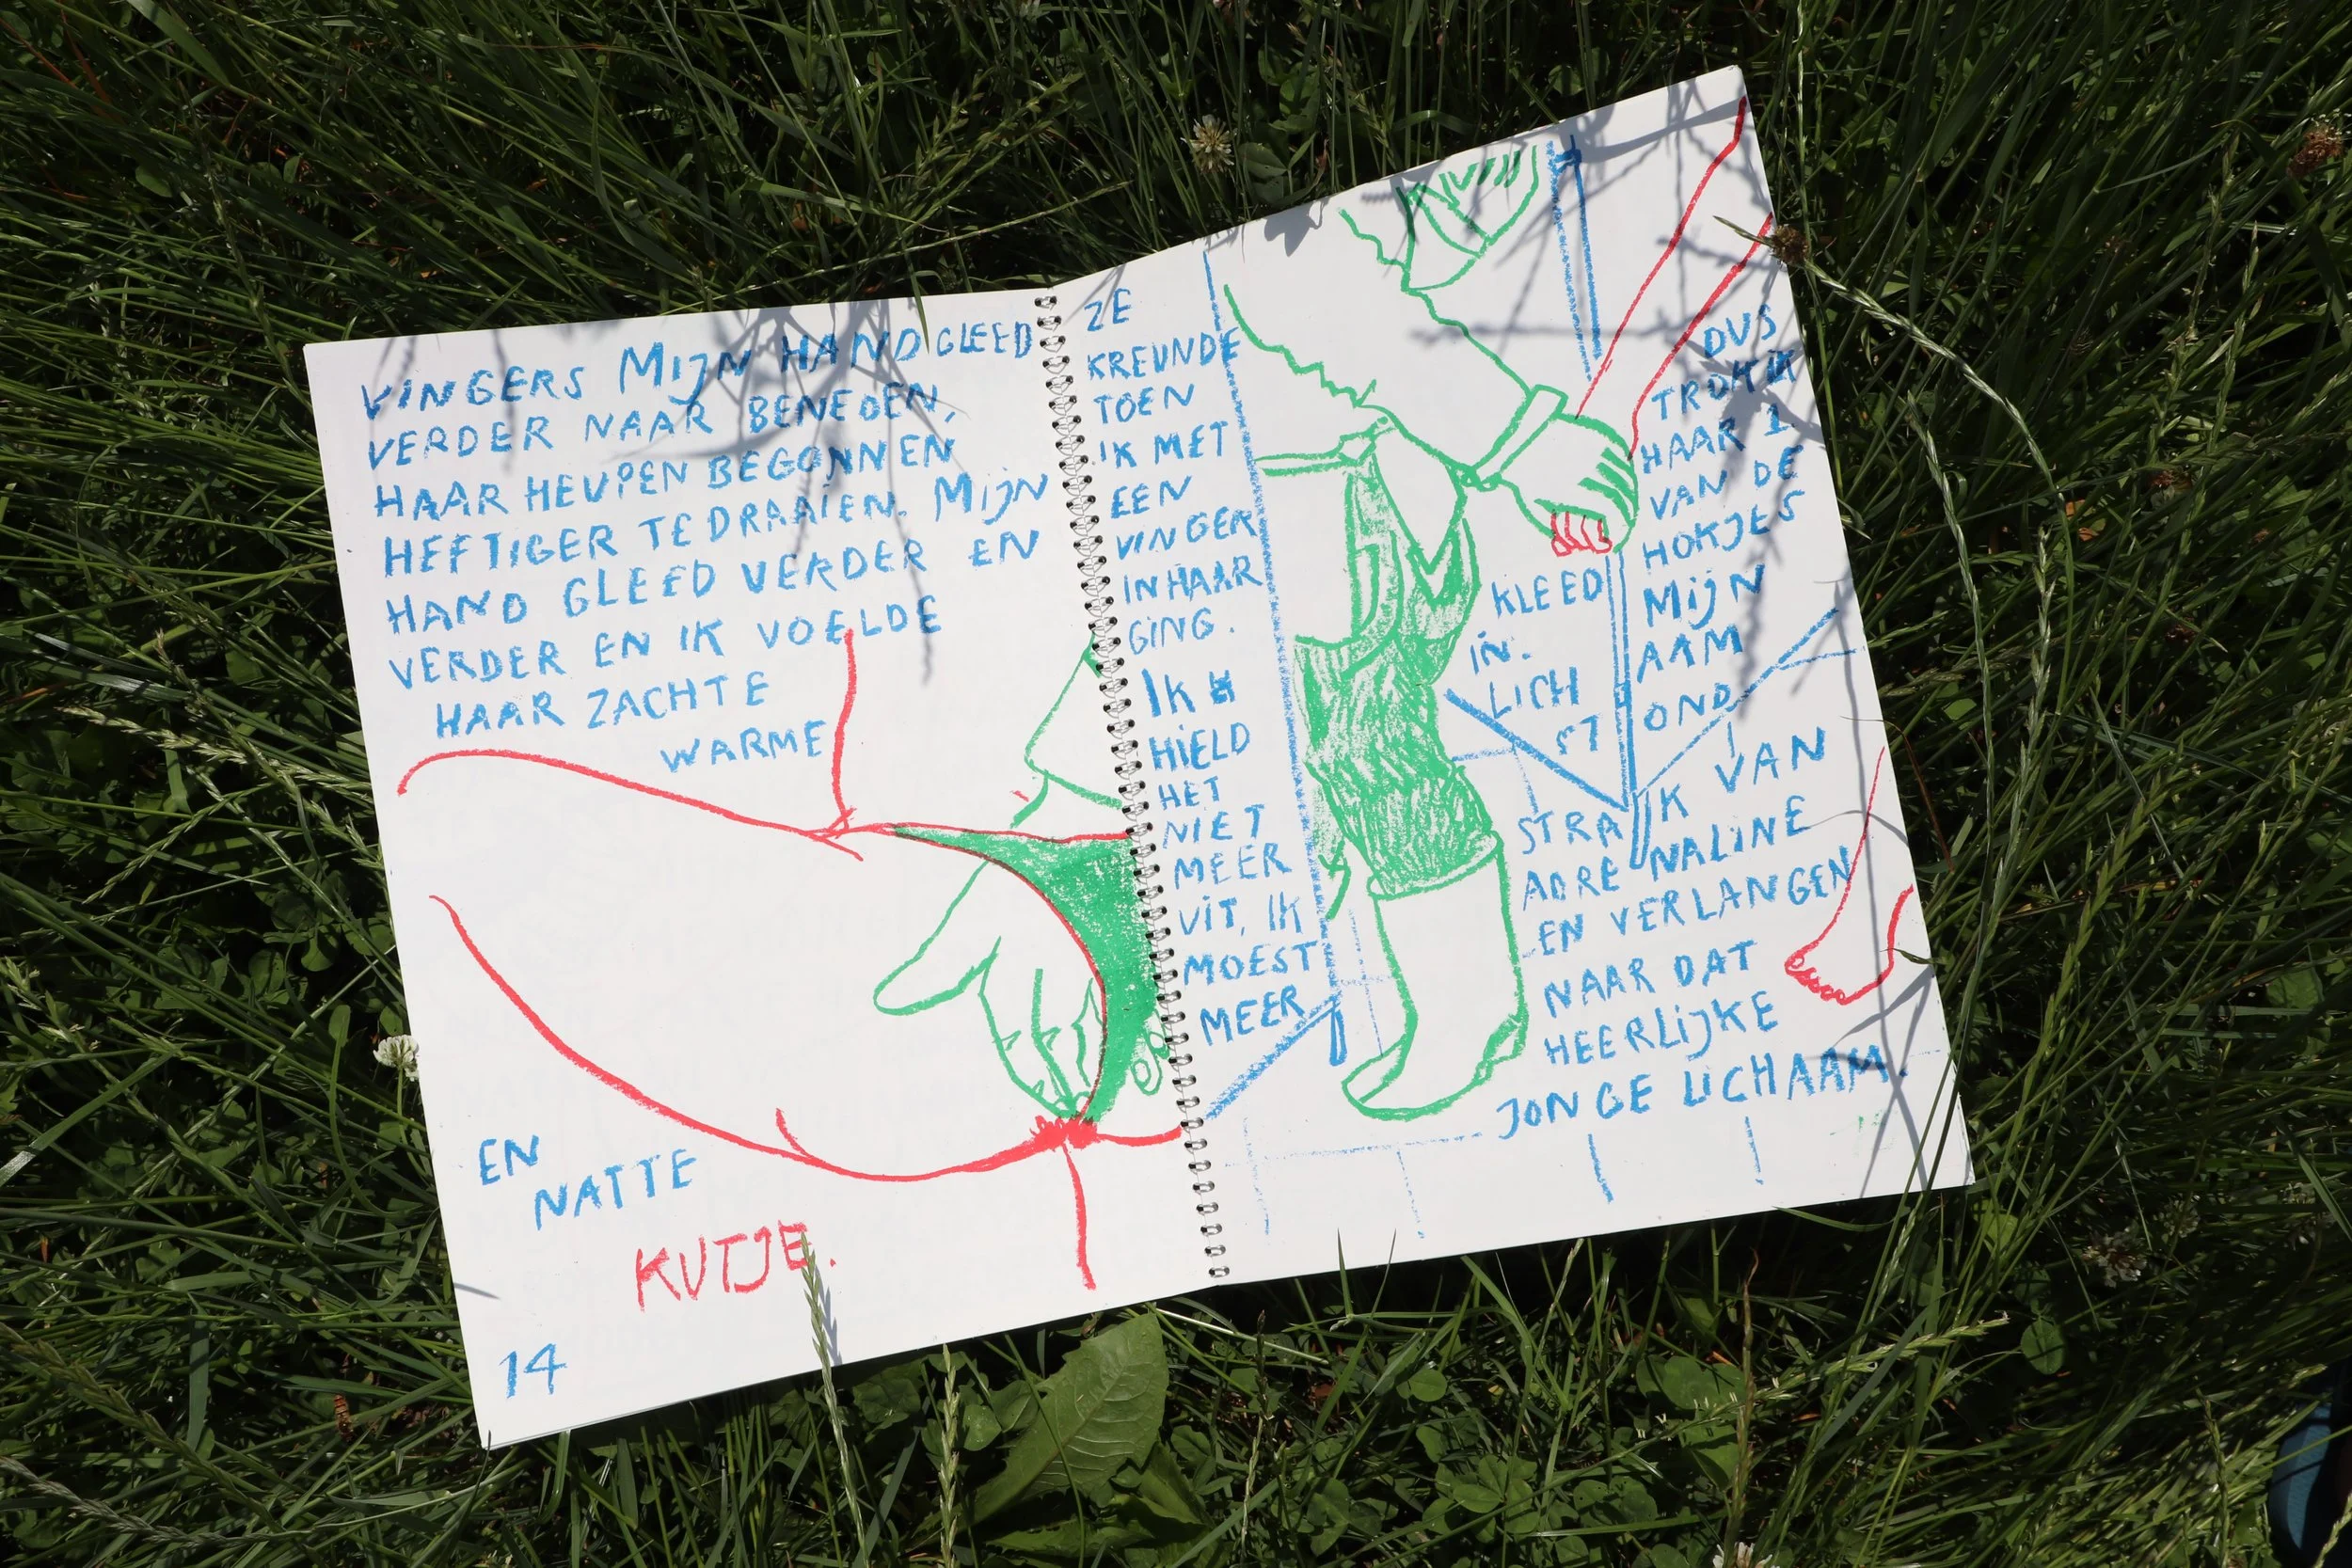 VINGERS MIJN HAND GLEED
VERDER NAAR BENEDEN,
HAAR HEUPEN BEGONNEN
HEFTIGER TE DRAAIEN. MIJN
HAND GLEED VERDER EN
VERDER EN IK VOELDE
HAAR ZACHTE
WARME
EN
NATTE
KUTJE.
14
ZE
KREUNDE
TOEN
IK MET
EEN
VINGER
IN HAAR
GING.
IK
HIELD
HET
NIET
MEER
UIT, IK
MOEST
MEER
DUS
TROK IK
HAAR 1
VAN DE
KLEED HOKJES
IN. MIJN
LICH AAM
ST OND
STRA IK VAN
ADRE NALINE
EN VERLANGEN
NAAR DAT
HEERLIJKE
JONGE LICHAAM.